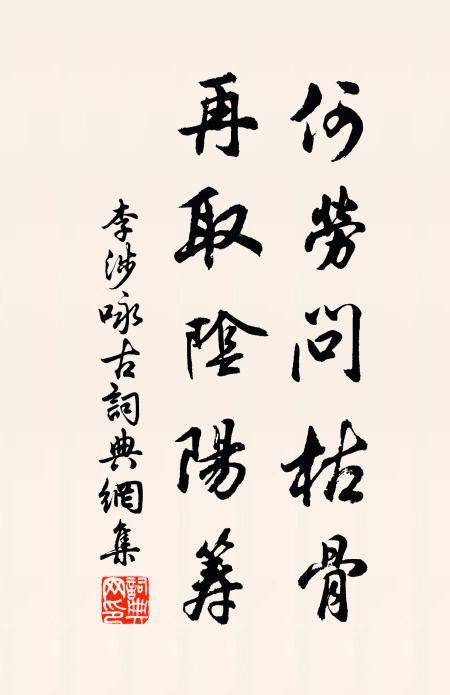 何勞問枯骨
再取陰陽筹
李涉咏古詞典網集
詞典网印